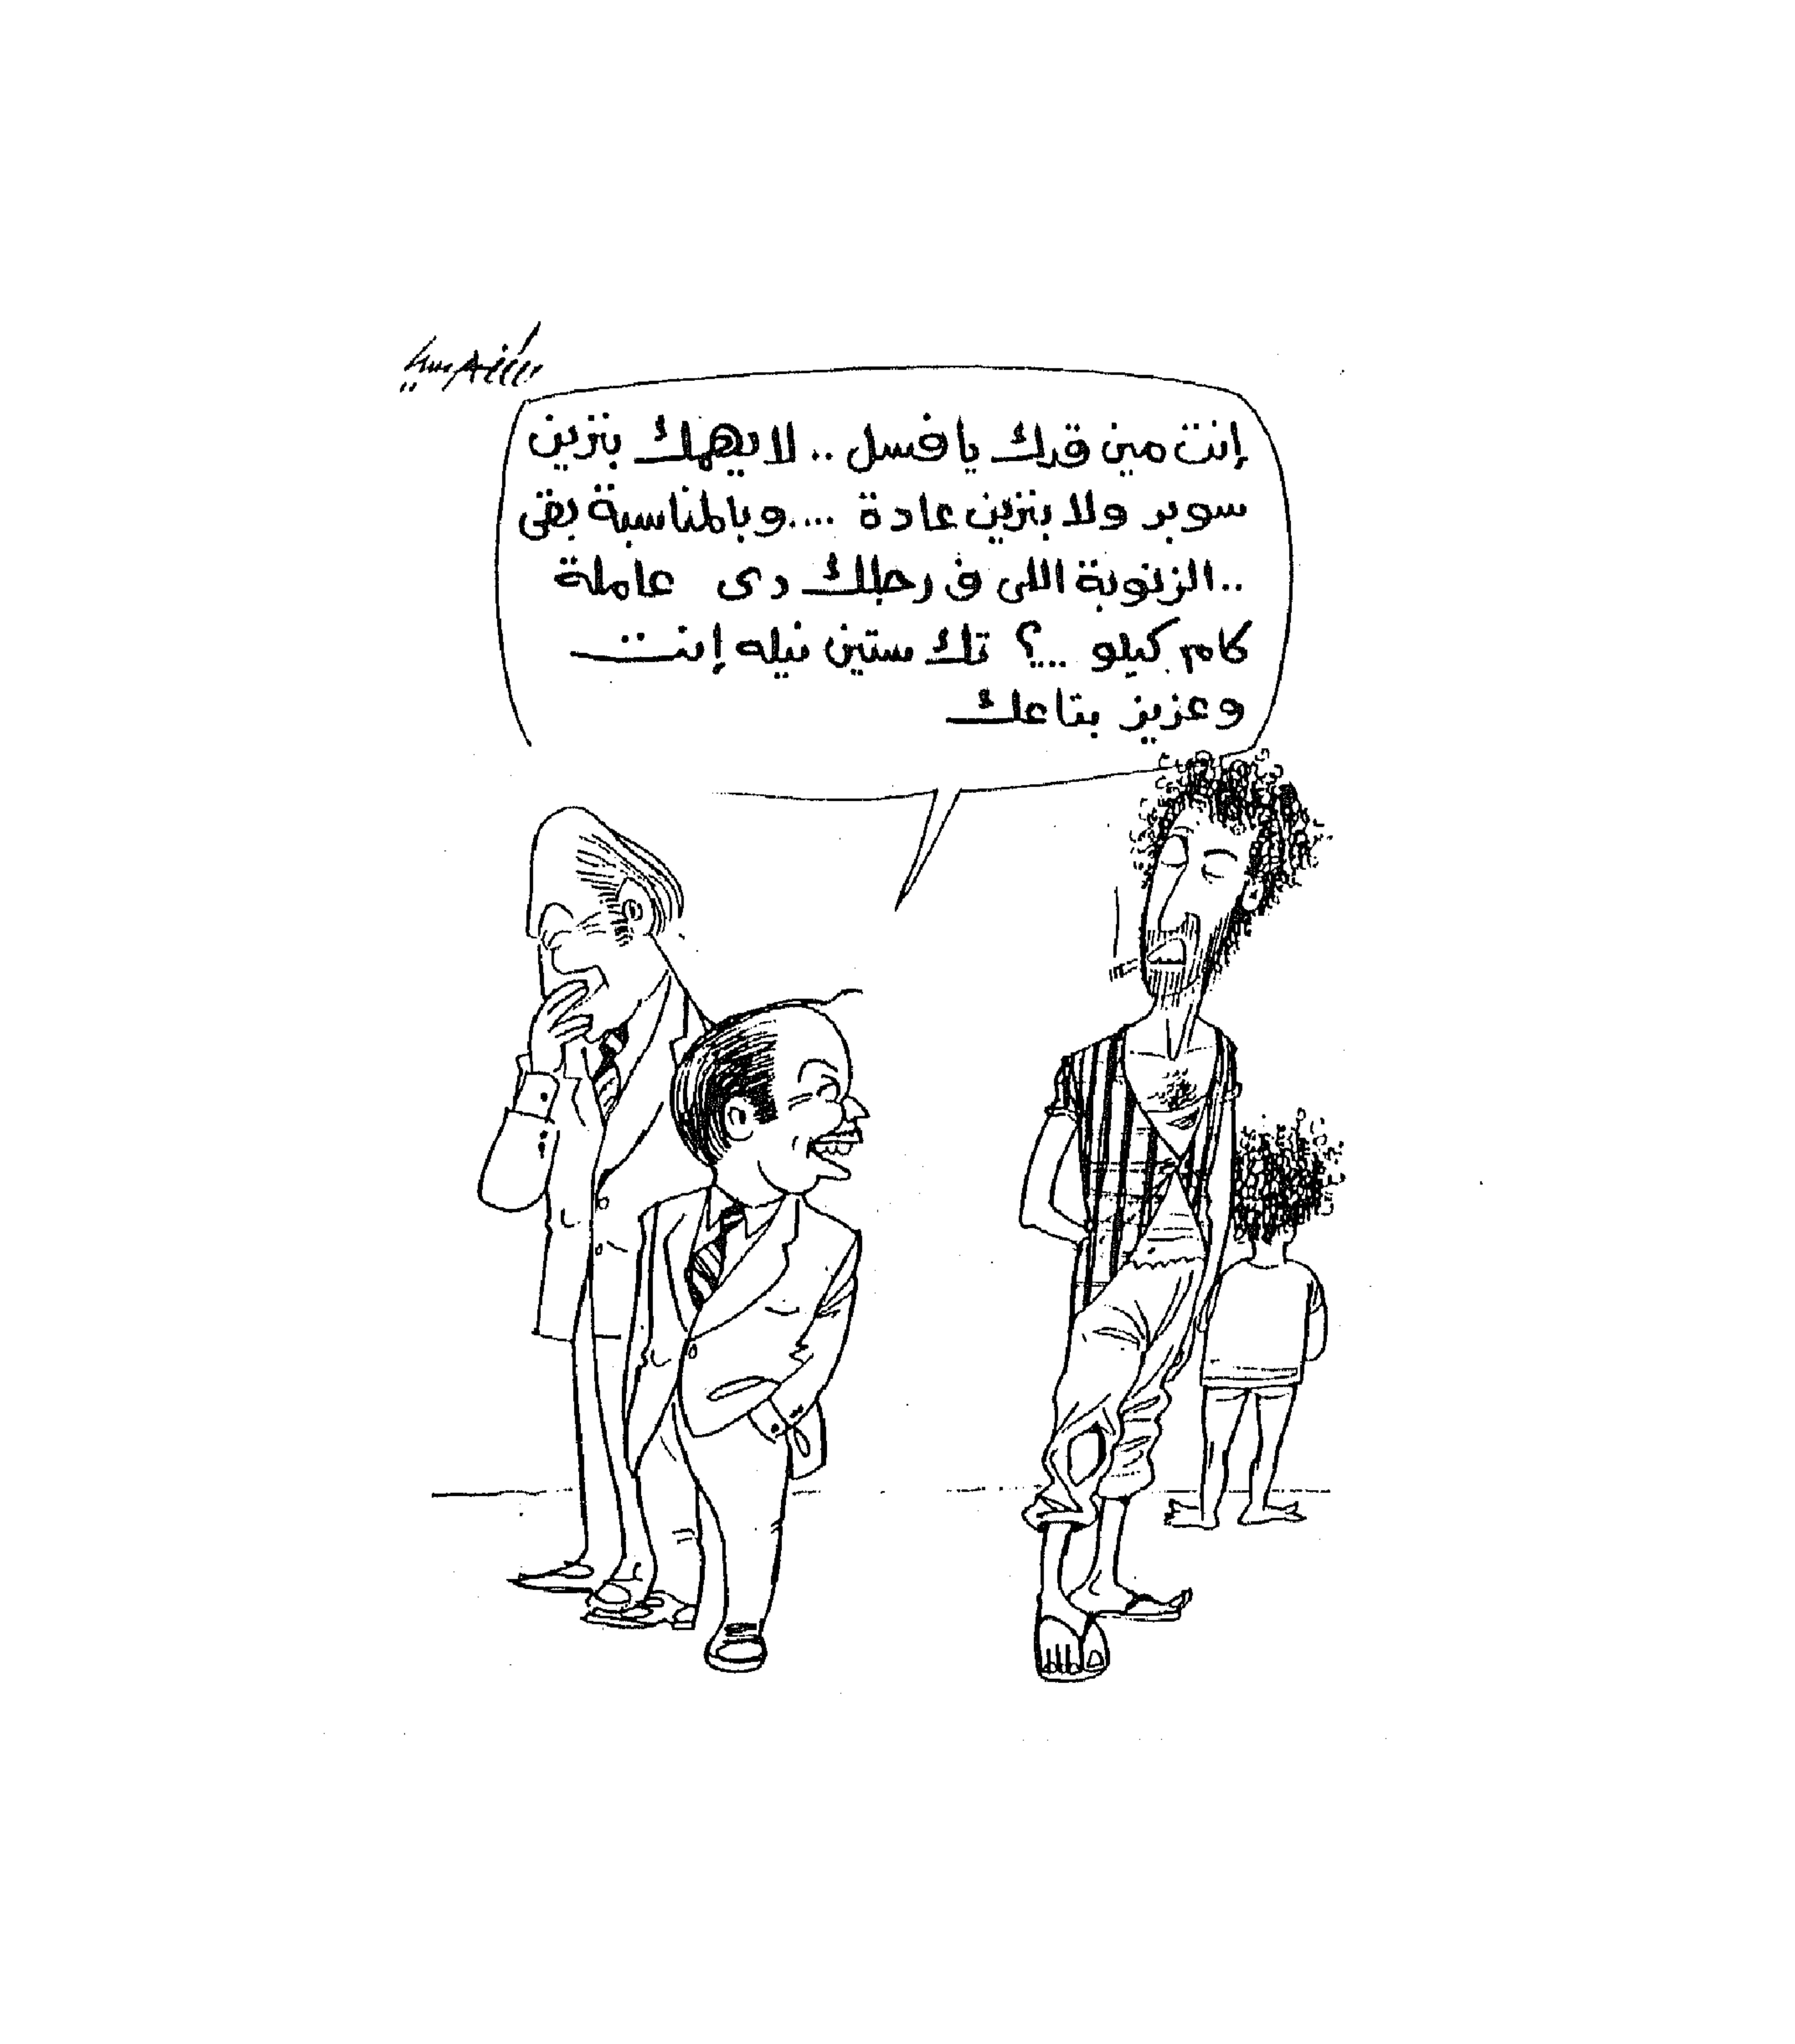 إنت مين قدك يا فسل .. لا يهمك بنزين
سوبر ولا بنزين عادة .... وبالمناسبة بقى
..الزنوبة اللى فى رجلك دى عاملة
كام كيلو ...؟ تك ستين نيله إنت
وعزيز بتاعك